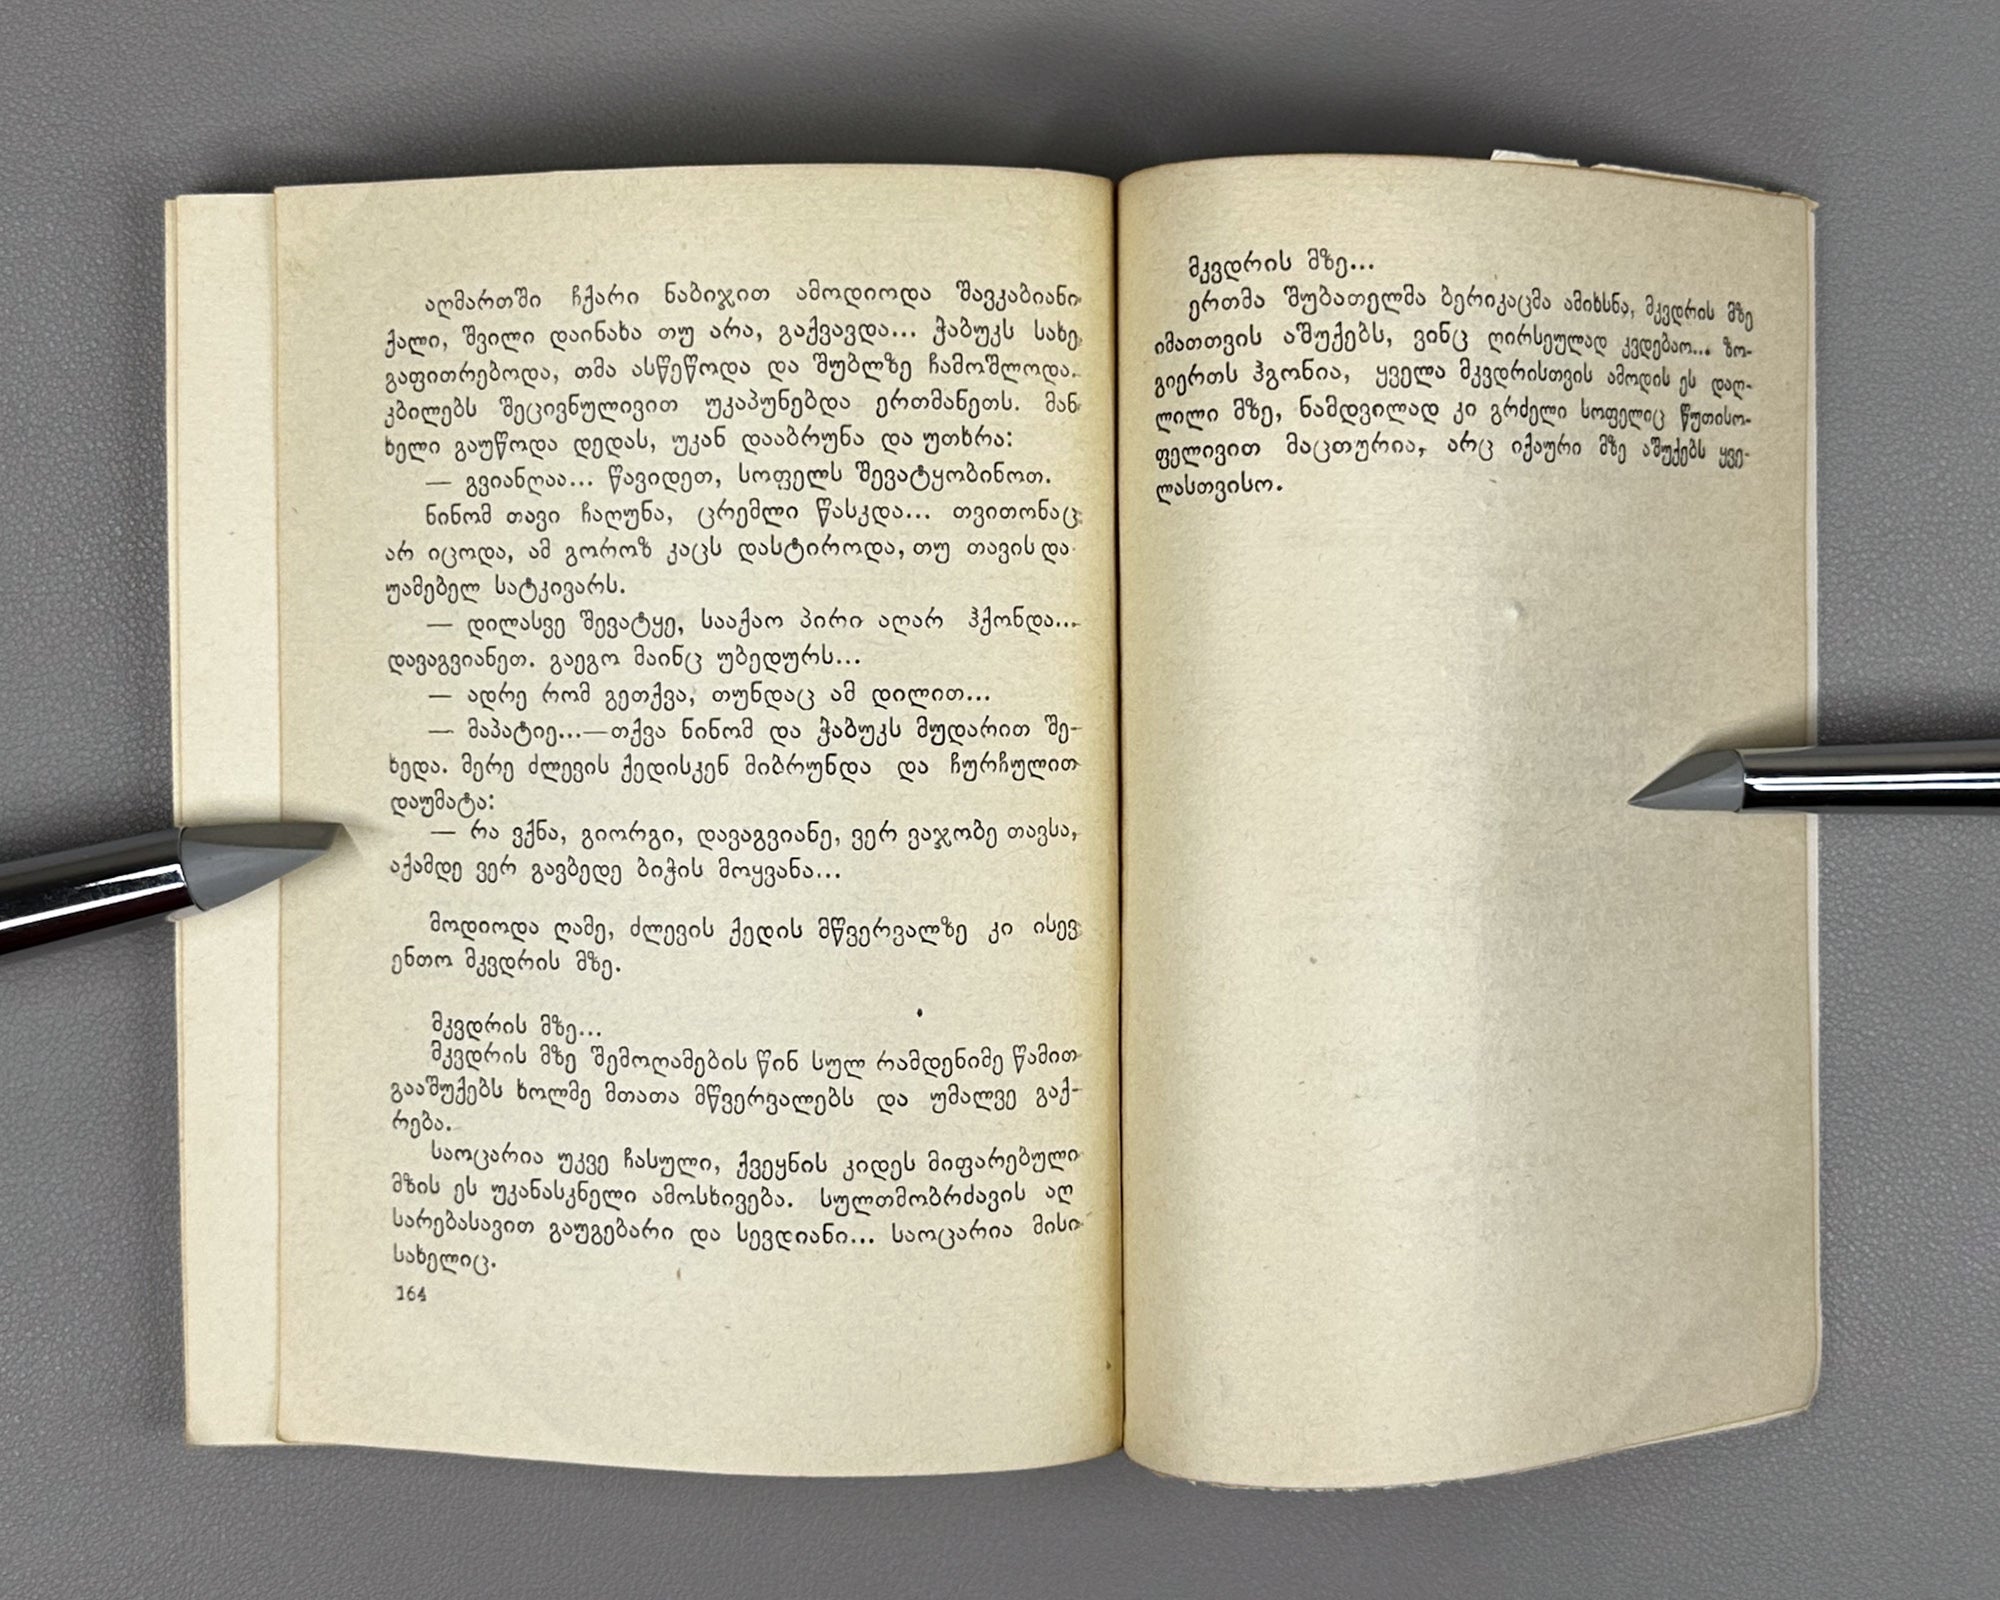 აღმართში ჩქარი ნაბიჯით ამოდიოდა შავკაბიანი
ქალი, შვილი დაინახა თუ არა, გაქვავდა... ჭაბუკს სახე
გაფითრებოდა, თმა ასწეწოდა და შუბლზე ჩამოშლოდა.
კბილებს შეცივნულივით უკაპუნებდა ერთმანეთს. მან
ხელი გაუწოდა დედას, უკან დააბრუნა და უთხრა:
— გვიანღაა... წავიდეთ, სოფელს შევატყობინოთ.
ნინომ თავი ჩაღუნა, ცრემლი წასკდა... თვითონაც
არ იცოდა, ამ გოროზ კაცს დასტიროდა, თუ თავის და
უამებელ სატკივარს.
— დილასვე შევატყე, სააქაო პირი აღარ ჰქონდა...
დავაგვიანეთ. გაეგო მაინც უბედურს...
— ადრე რომ გეთქვა, თუნდაც ამ დილით...
— მაპატიე...—თქვა ნინომ და ჭაბუკს მუდარით შე-
ხედა. მერე ძლევის ქედისკენ მიბრუნდა და ჩურჩულით
დაუმატა:
— რა ვქნა, გიორგი, დავაგვიანე, ვერ ვაჯობე თავსა,
აქამდე ვერ გავბედე ბიჭის მოყვანა...
მოდიოდა ღამე, ძლევის ქედის მწვერვალზე კი ისევ
ენთო მკვდრის მზე.
მკვდრის მზე...
მკვდრის მზე შემოღამების წინ სულ რამდენიმე წამით
გააშუქებს ხოლმე მთათა მწვერვალებს და უმალვე გაქ-
რება.
საოცარია უკვე ჩასული, ქვეყნის კიდეს მიფარებული
მზის ეს უკანასკნელი ამოსხივება. სულთმობრძავის აღ
სარებასავით გაუგებარი და სევდიანი... საოცარია მისი
სახელიც.
164
მკვდრის მზე...
ერთმა შუბათელმა ბერიკაცმა ამიხსნა, მკვდრის მზე
იმათთვის აშუქებს, ვინც ღირსეულად კვდებაო... ზო-
გიერთს ჰგონია, ყველა მკვდრისთვის ამოდის ეს დაღ-
ლილი მზე, ნამდვილად კი გრძელი სოფელიც წუთისო-
ფელივით მაცთურია, არც იქაური მზე აშუქებს ყვე-
ლასთვისო.